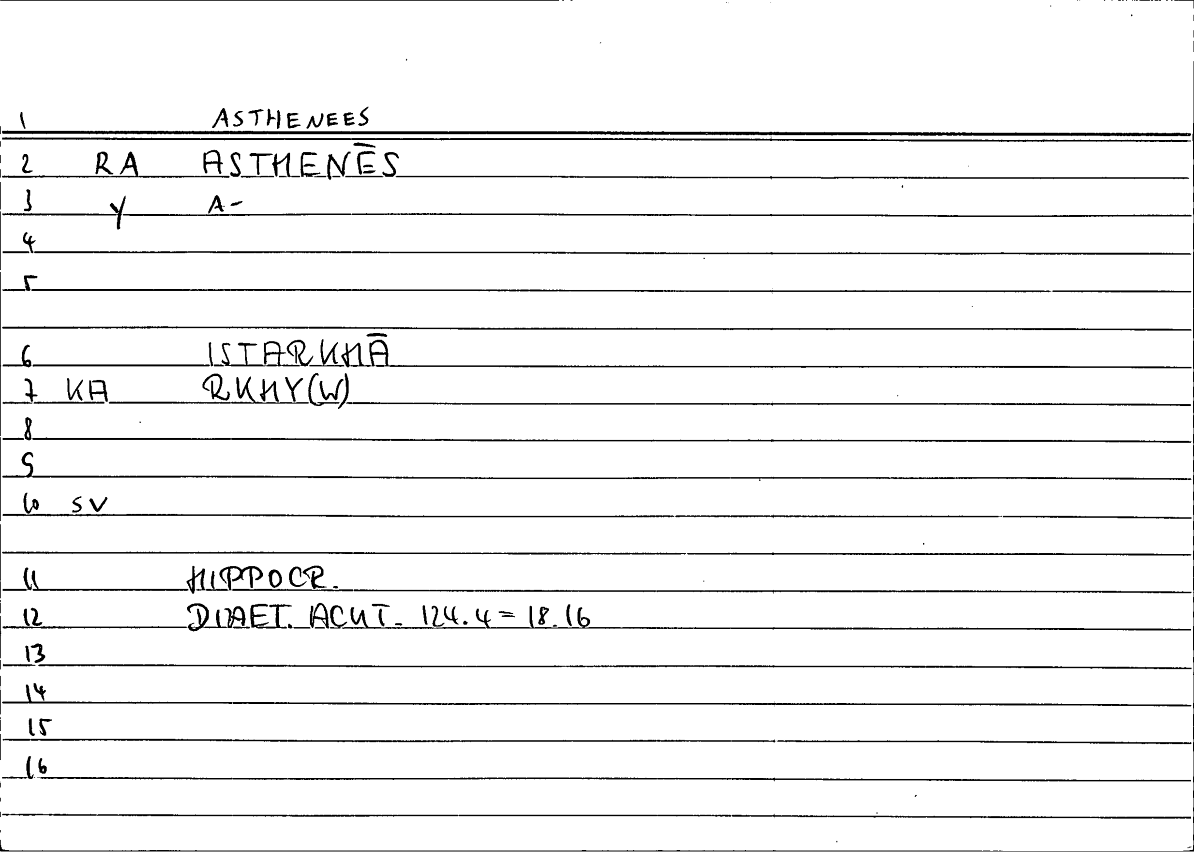 1 ASTHENEES
2 RA ASTHENĒS
3 Y A-
4
5
6 ISTARKHĀ
7 KA RKHY(W)
8
9
10 SV
11 HIPPOCR.
12 DIAET. ACUT. 124.4 = 18.16
13
14
15
16